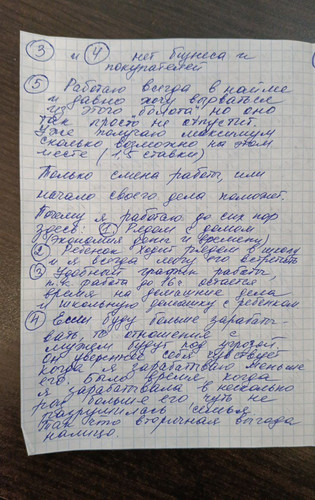 ③ и ④ нет бизнеса и
покупателей
⑤ Работаю всегда в найме
и давно хочу вырваться
из этого "болота", но оно
так просто не отпустит.
Уже получаю максимум
сколько возможно на этом
месте (1,5 ставки)
Только смена работы, или
начало своего дела поможет.
Почему я работаю до сих пор
здесь: ① Рядом с домом
(Экономия денег и времени)
② Ребенок ходит рядом в школу
и я всегда могу его встретить
③ Удобный график работы
т.к. работа до 16⁰⁰ остается
время на домашние дела
и школьную домашку с ребёнком.
④ Если буду больше зарабаты-
вать, то отношение с
мужем будут под угрозой.
Он увереннее себя чувствует
когда я зарабатываю меньше
его. Было время когда
я зарабатывала в несколько
раз больше его, чуть не
разрушилась семья
Так что вторичная выгода
налицо.